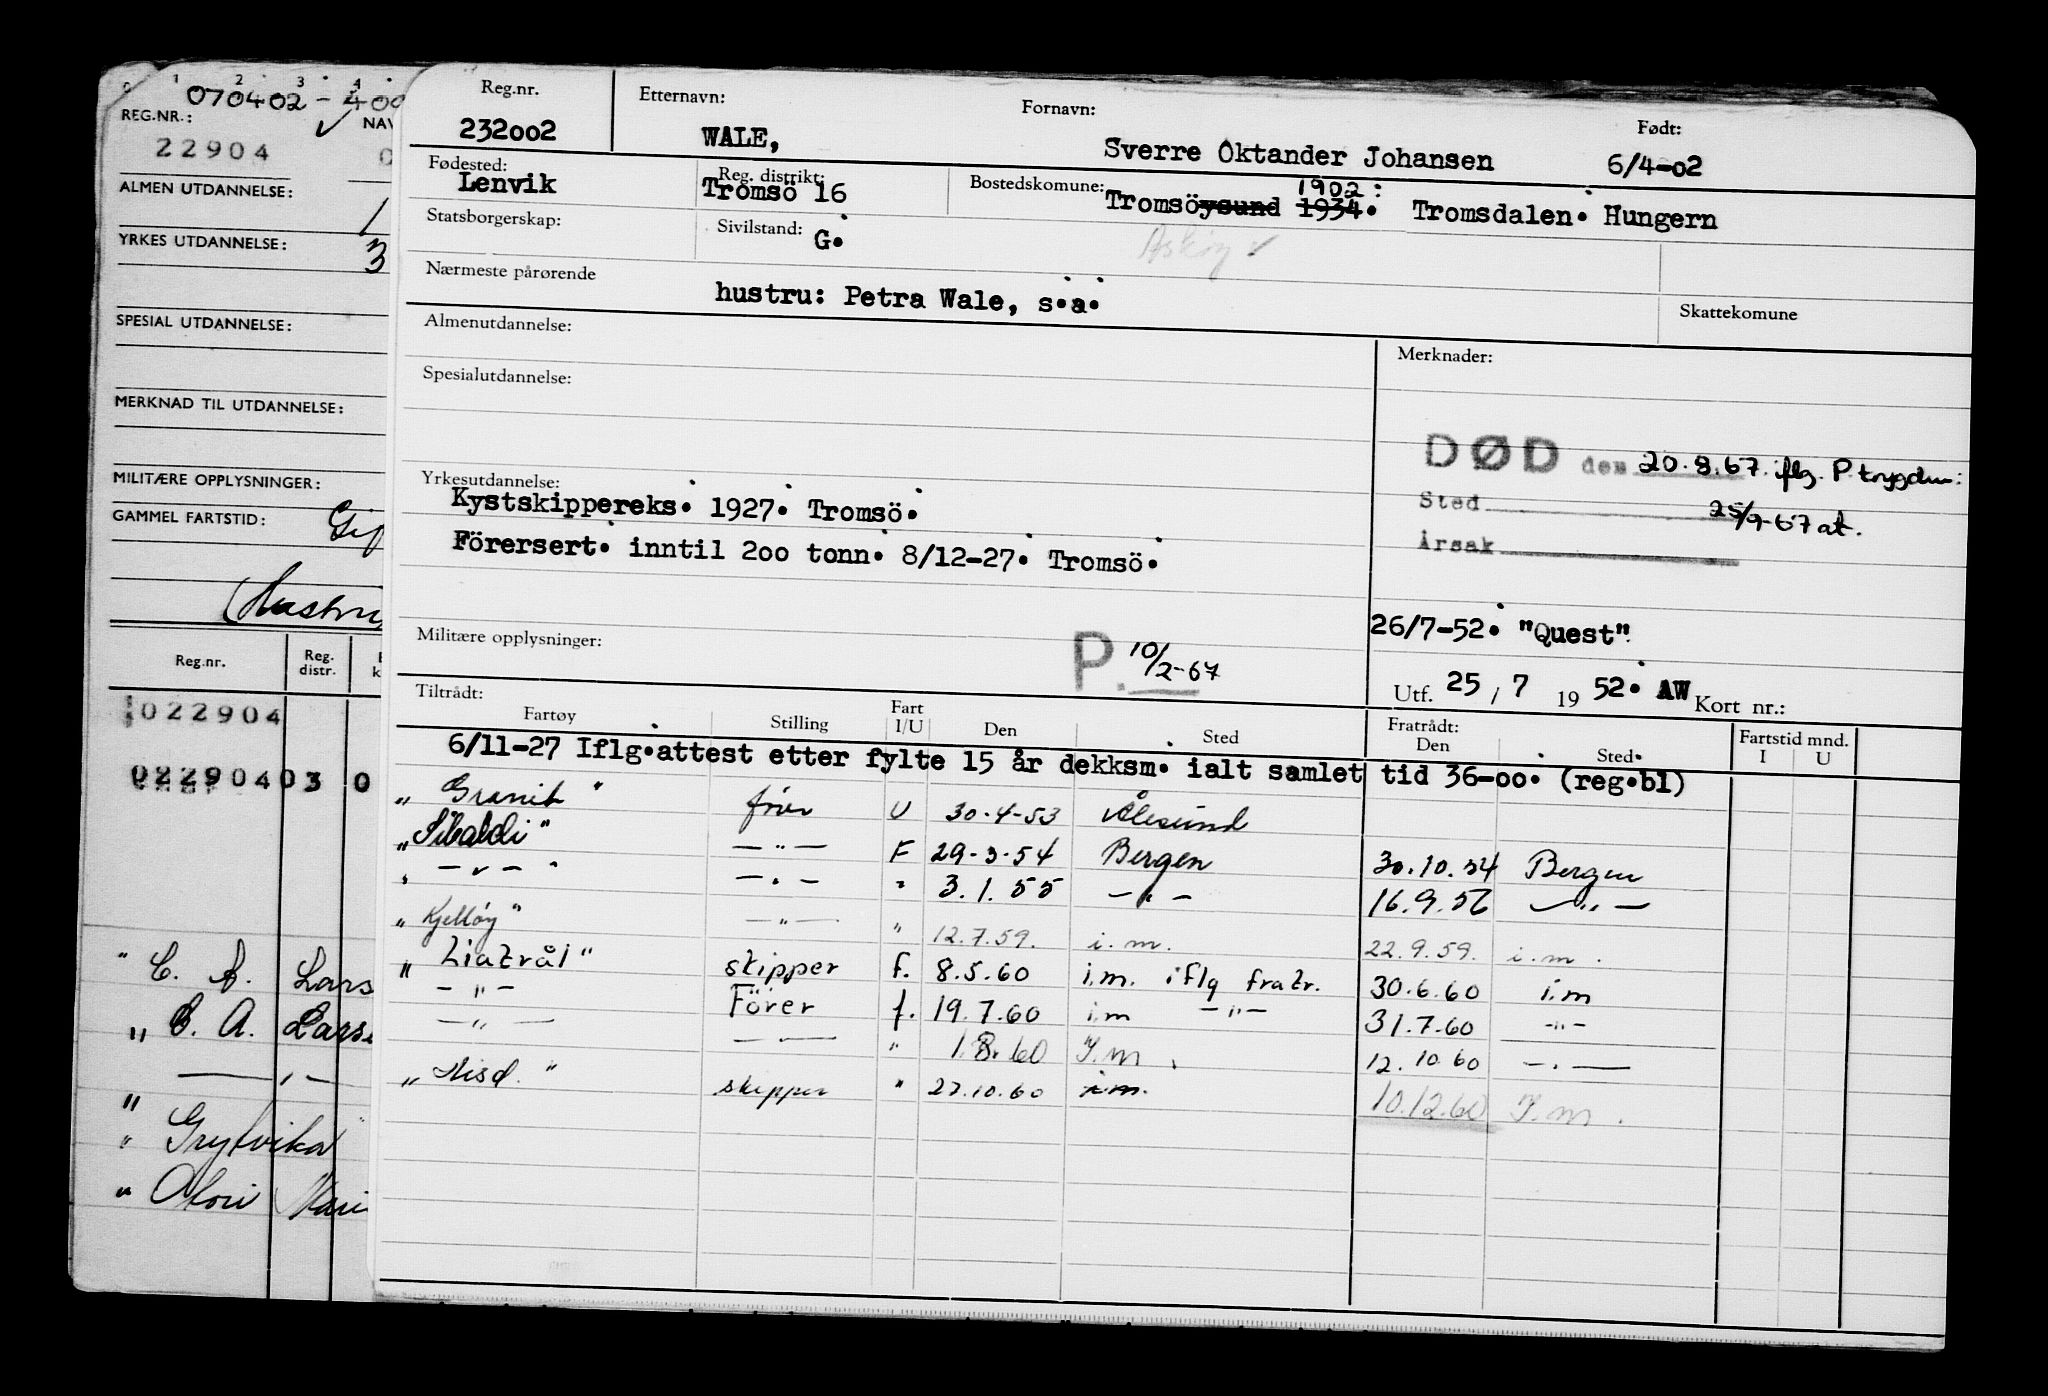 070402 - 400
REG.NR.: NAV
22904
ALMEN UTDANNELSE:
1
YRKES UTDANNELSE: 3
SPESIAL UTDANNELSE:
MERKNAD TIL UTDANNELSE:
MILITÆRE OPPLYSNINGER:
GAMMEL FARTSTID: Gif
(Hustru
Reg.nr. Reg. distr.
022904
02290403 0
" C. A. Lars
" C. A. Larse
— " —
"
" Grytvika
Reg.nr. Etternavn: Fornavn: Født:
232002 WALE, Sverre Oktander Johansen 6/4-02
Fødested: Reg. distrikt: Bostedskomune: 1902:
Lenvik Tromsö 16 Tromsöysund 1934. Tromsdalen. Hungern
Statsborgerskap: Sivilstand: G. Askøy ✓
Nærmeste pårørende
hustru: Petra Wale, s.a.
Skattekomune
Almenutdannelse:
Merknader:
Spesialutdannelse:
DØD den 20.8.67 iflg. P.trygden:
Sted 25/9-67 at.
Årsak
Yrkesutdannelse:
Kystskippereks. 1927. Tromsö.
Förersert. inntil 200 tonn. 8/12-27. Tromsö.
26/7-52. "Quest".
Militære opplysninger: P. 10/2-67
Utf. 25 / 7 19 52. AW Kort nr.:
Tiltrådt: Fratrådt: Fartstid mnd.
Fartøy Stilling Fart I/U Den Sted Den Sted I U
6/11-27 Iflg.attest etter fylte 15 år dekksm. ialt samlet tid 36-00. (reg.bl)
" Granit " fører U 30.4-53 Ålesund
" Sibaldi " — " — F 29-3-54 Bergen 30.10.54 Bergen
" — " — " — " — " 3.1.55 — " — 16.9.56 — " —
" Kjelløy " — " — " 12.7.59. i.m. 22.9.59. i.m.
" Liatrål " skipper f. 8.5.60 i.m. iflg fratr. 30.6.60 i.m
— " — Förer f. 19.7.60 i.m — " — 31.7.60 — " —
— " — — " — " 1.8.60 I.m. 12.10.60 — " —
" Nisd. " skipper " 27.10.60 i.m. 10.12.60 I.m.